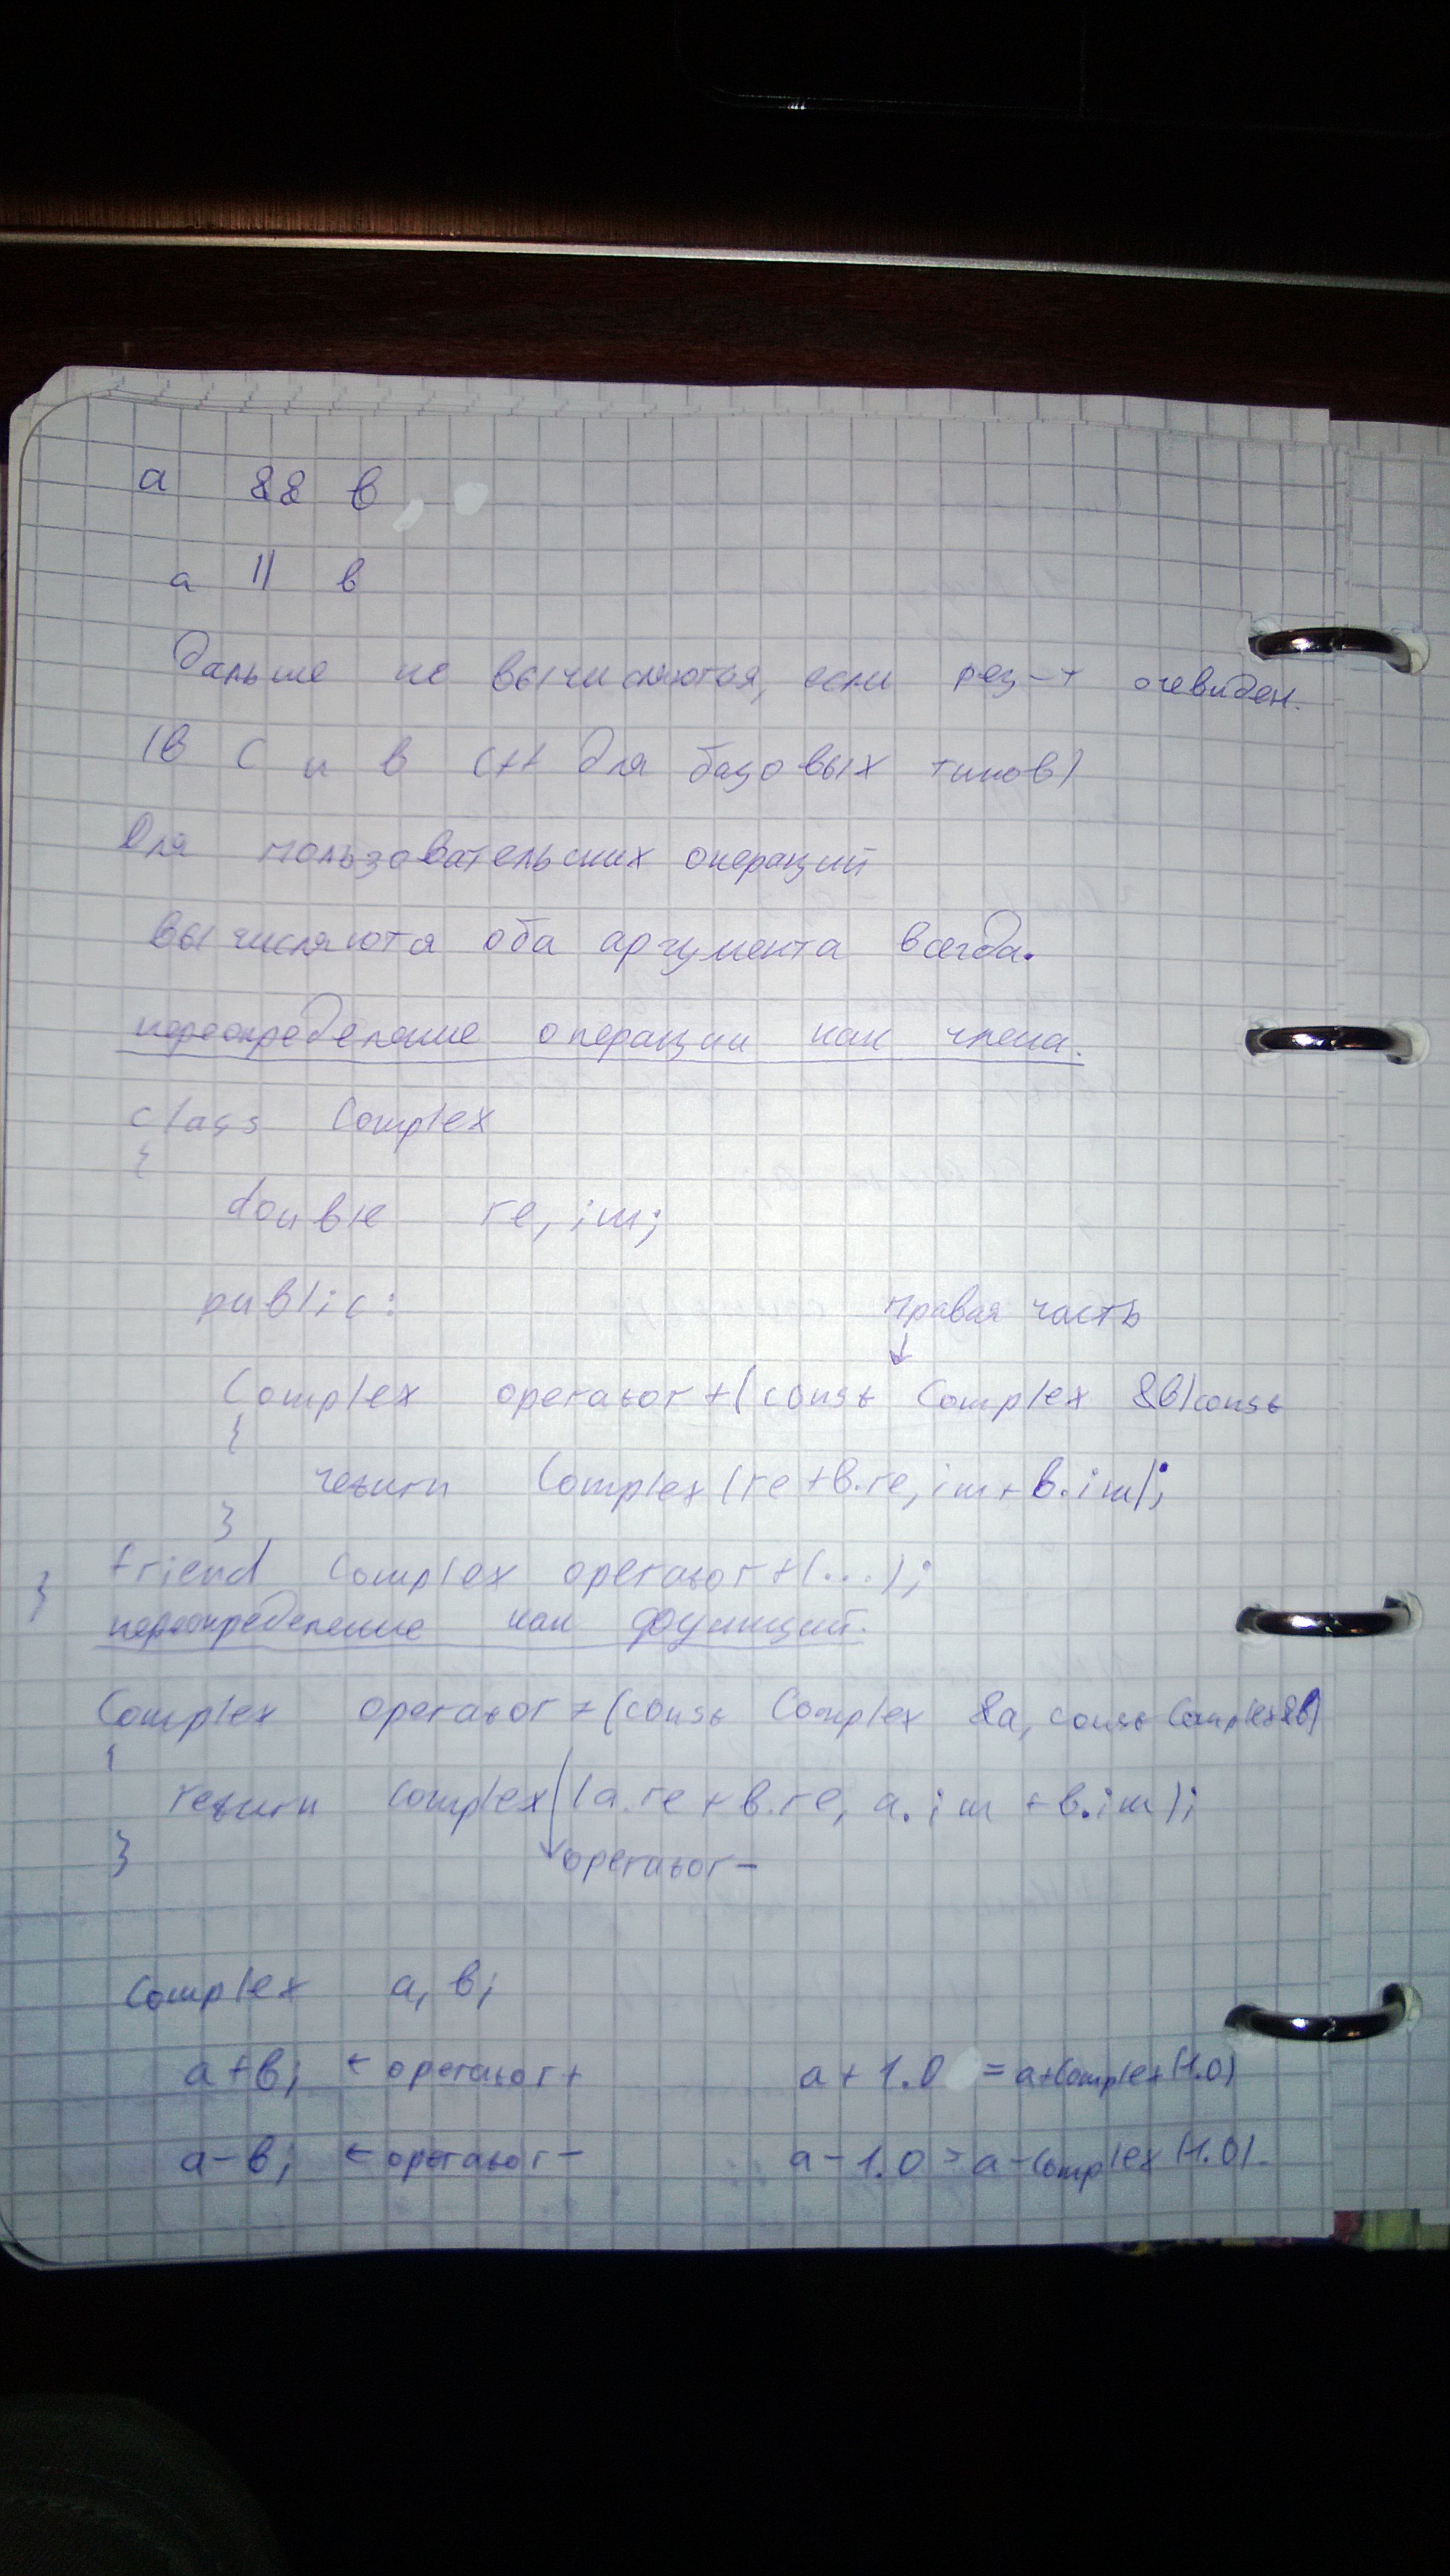 a && b
a || b
Дальше не вычисляются, если рез-т очевиден.
(в C и в C++ для базовых типов)
Для пользовательских операций
вычисляются оба аргумента всегда.
переопределение операции как члена.
class Complex
{
double re, im;
public:
правая часть
↓
Complex operator+(const Complex &b)const
{
return Complex(re+b.re, im+b.im);
}
friend Complex operator+(...);
}
переопределение как функций.
Complex operator+(const Complex &a, const Complex &b)
{
return Complex(a.re+b.re, a.im+b.im);
}
operator-
Complex a, b;
a+b; ← operator+ a+1.0 = a+Complex(1.0)
a-b; ← operator- a-1.0 = a-Complex(1.0).